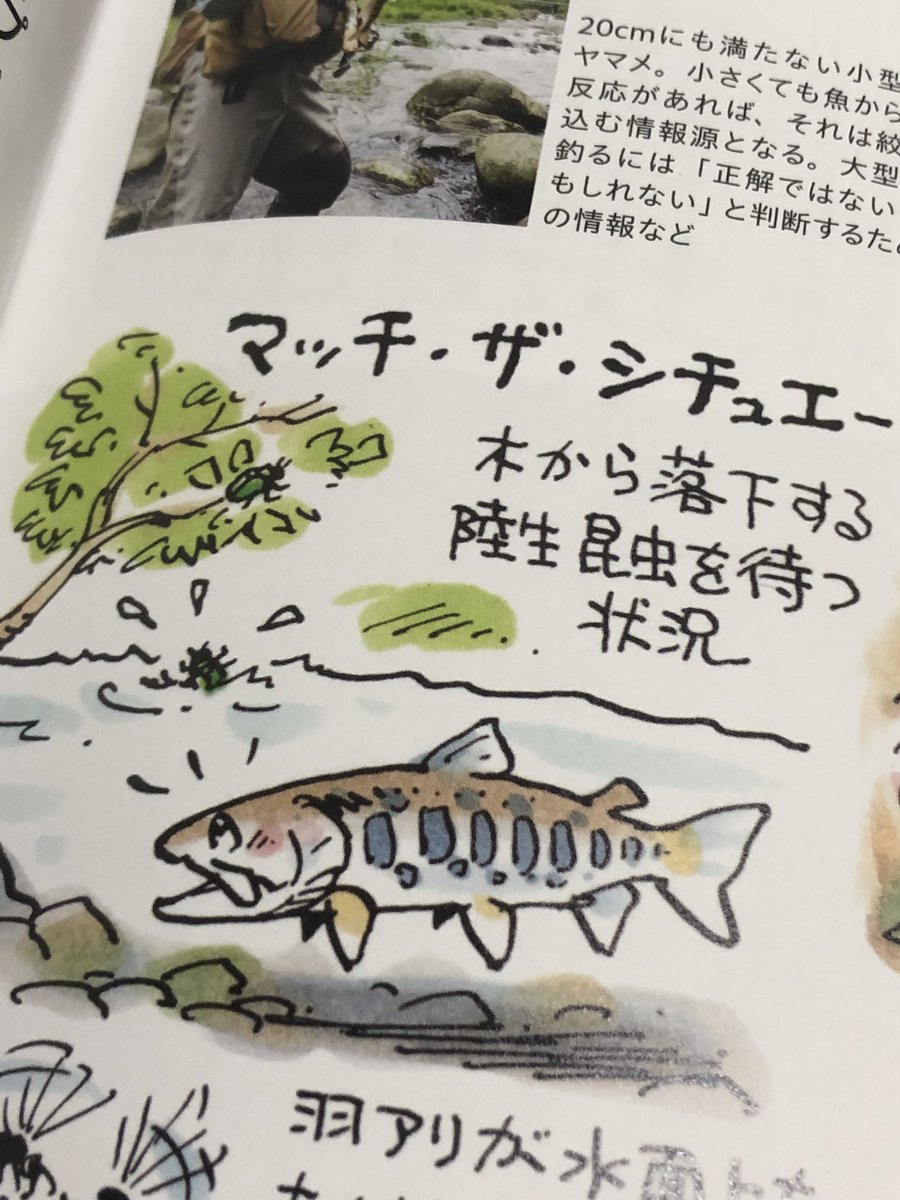 20cmにも満たない小型
ヤマメ。小さくても魚から
反応があれば、それは絞
込む情報源となる。大型
釣るには「正解ではない
もしれない」と判断するため
の情報など
マッチ・ザ・シチュエー
木から落下する
陸生昆虫を待つ
状況
羽アリが水面